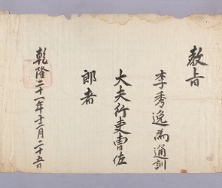 教旨
李秀逸為通訓
大夫行吏曹佐
郎者
乾隆二十一年十二月二十五日